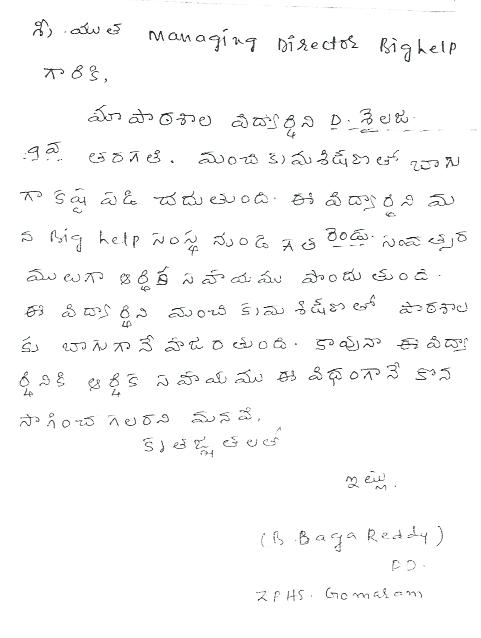 శ్రీ యుత Managing Director Bighelp
గారికి,
మా పాఠశాల విద్యార్థిని D. శైలజ
9వ తరగతి. మంచి క్రమశిక్షణతో బాగు
గా కష్ట పడి చదుతుంది. ఈ విద్యార్థిని మ
న Big help సంస్థ నుండి గత రెండు సంవత్సర
ములుగా ఆర్థిక సహాయము పొందుతుంది.
ఈ విద్యార్థిని మంచి క్రమశిక్షణతో పాఠశాల
కు బాగుగానే హాజరతుంది. కావునా ఈ విద్యా
ర్థినికి ఆర్థిక సహాయము ఈ విధంగానే కొన
సాగించ గలరని మనవి.
కృతజ్ఞతలతో
ఇట్లు.
(B. Baga Reddy)
P.D.
ZPHS. Gomaram